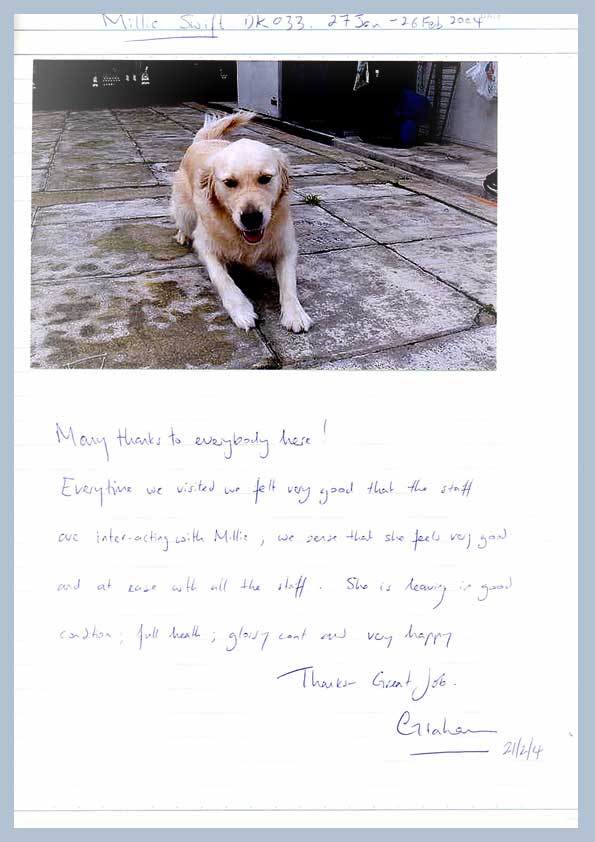 Millie Swift DK033. 27 Jan - 26 Feb 2004
Many thanks to everybody here!
Everytime we visited we felt very good that the staff
are inter-acting with Millie, we sense that she feels very good
and at ease with all the staff. She is leaving in good
condition; full health; glossy coat and very happy
Thanks Great Job.
Graham
21/2/4